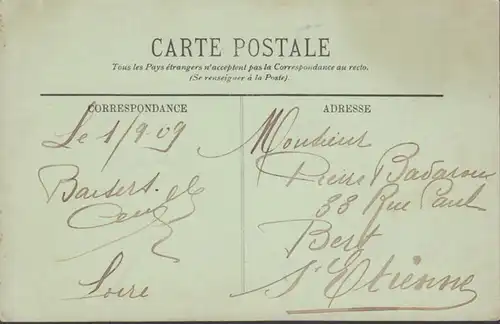 CARTE POSTALE
Tous les Pays étrangers n'acceptent pas la Correspondance au recto.
(Se renseigner à la Poste).
CORRESPONDANCE
Le 1/9-09
Baisers
Loire
ADRESSE
Monsieur
Pierre Badarou
33 Rue Paul
Bert
St Etienne